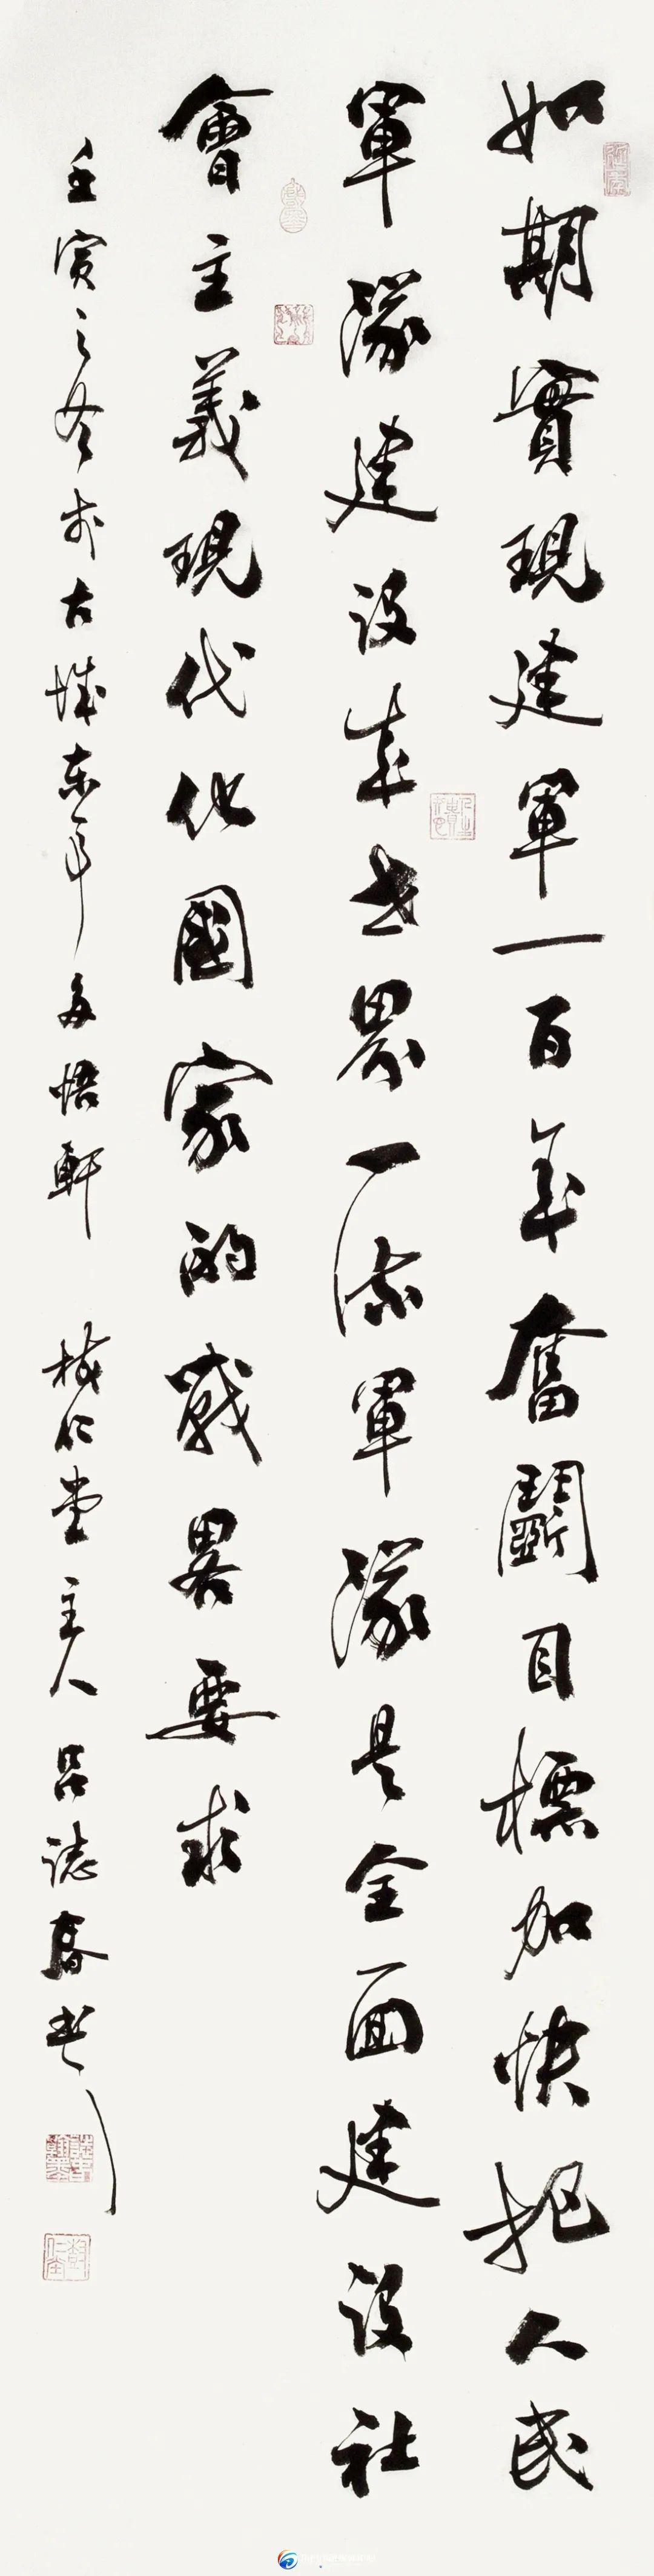 如期實現建軍一百年奮鬭目標加快把人民
軍隊建設成世界一流軍隊是全面建設社
會主義現代化國家的戰畧要求
壬寅之冬於古城東郭悟軒 棫仁堂主人呂誌春書